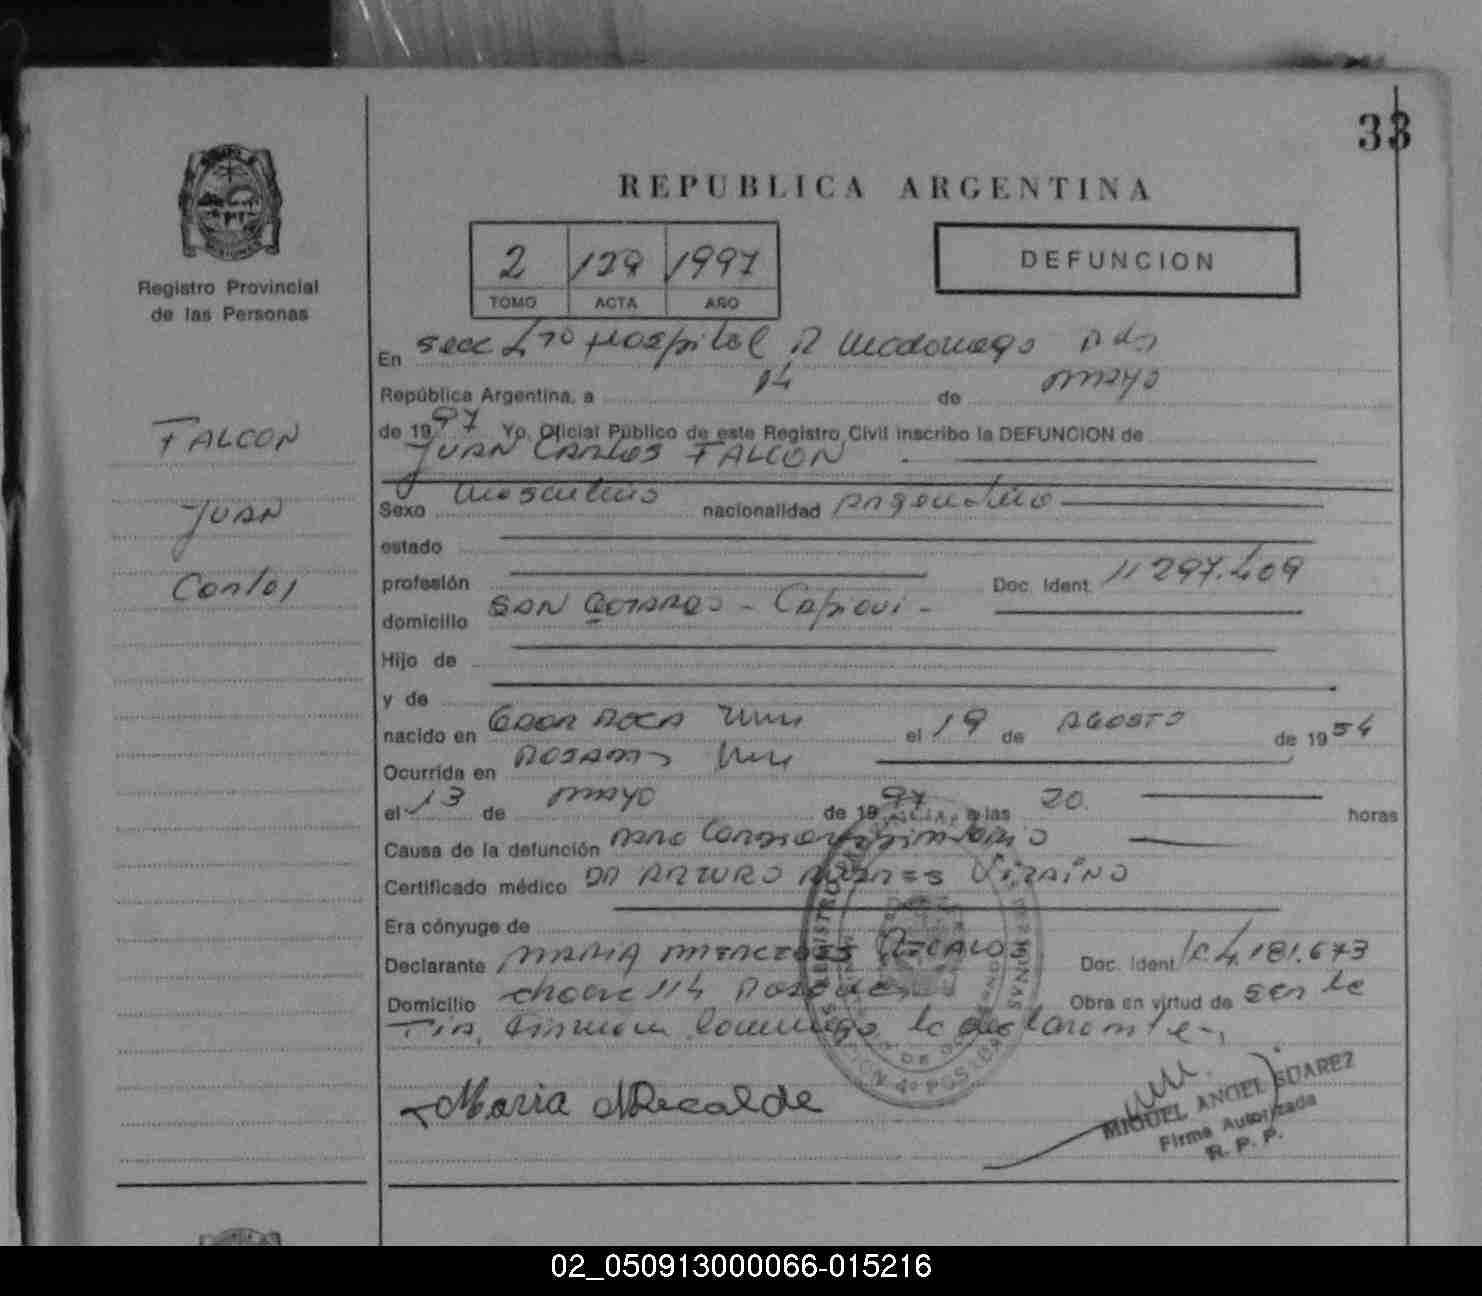 33
REPUBLICA ARGENTINA
2 129 1997
TOMO ACTA AÑO
DEFUNCION
Registro Provincial
de las Personas
FALCON
JUAN
Carlos
En Secc 4to Hospital R Madariaga Pdas
República Argentina, a 14 de MAYO
de 1997 Yo, Oficial Público de este Registro Civil inscribo la DEFUNCION de
JUAN CARLOS FALCON
Sexo Masculino nacionalidad Argentino
estado
profesión Doc. Ident. 11 297.409
domicilio SAN Capiovi -
Hijo de
y de
nacido en Mnes el 19 de AGOSTO de 1954
Ocurrida en Mnes
el 13 de MAYO de 1997 a las 20. horas
Causa de la defunción PARO Cardiorespiratorio
Certificado médico DR ARTURO VIZAINO
Era cónyuge de
Declarante MARIA MERCEDES RECALDE Doc. Ident. LC 4.181.673
Domicilio 114 Posadas Obra en virtud de ser la
TIA, Firman conmigo la declarante,
Maria M Recalde
MIGUEL ANGEL SUAREZ
Firma Autorizada
R. P. P.
02_050913000066-015216